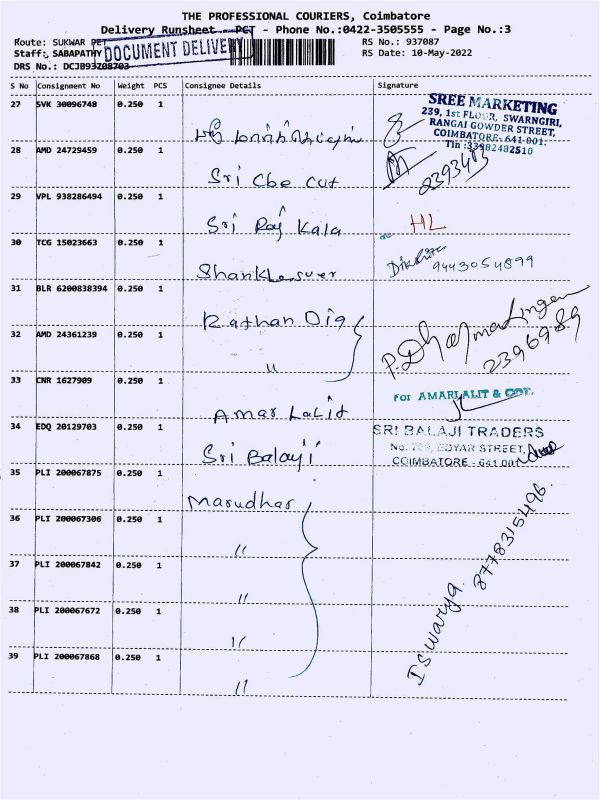 THE PROFESSIONAL COURIERS, Coimbatore
Delivery Runsheet - PCT - Phone No.:0422-3505555 - Page No.:3
Route: SUKWAR PET
RS No.: 937087
Staff: SABAPATHY
DOCUMENT DELIVERY
RS Date: 10-May-2022
DRS No.: DCJB93708703
S No Consignment No Weight PCS Consignee Details Signature
27 SVK 30096748 0.250 1
SREE MARKETING
239, 1st FLOOR, SWARNGIRI,
RANGAI GOWDER STREET,
COIMBATORE-641 001.
Tin :33982482510
28 AMD 24729459 0.250 1 Sri Cbe Cut
29 VPL 938286494 0.250 1 Sri Raj Kala HL
30 TCG 15023663 0.250 1 Shankleswer 9443054899
31 BLR 6200838394 0.250 1 Rathan Dig
32 AMD 24361239 0.250 1 "
P. Dharmalingam
2396989
33 CNR 1627909 0.250 1 Amar Lalit
For AMARLALIT & CO.
34 EDQ 20129703 0.250 1 Sri Balaji
SRI BALAJI TRADERS
EDYAR STREET,
COIMBATORE - 641 001
35 PLI 200067875 0.250 1 Marudhar
36 PLI 200067306 0.250 1 "
37 PLI 200067842 0.250 1 "
38 PLI 200067672 0.250 1 "
39 PLI 200067868 0.250 1 "
Iswarya 8778315496